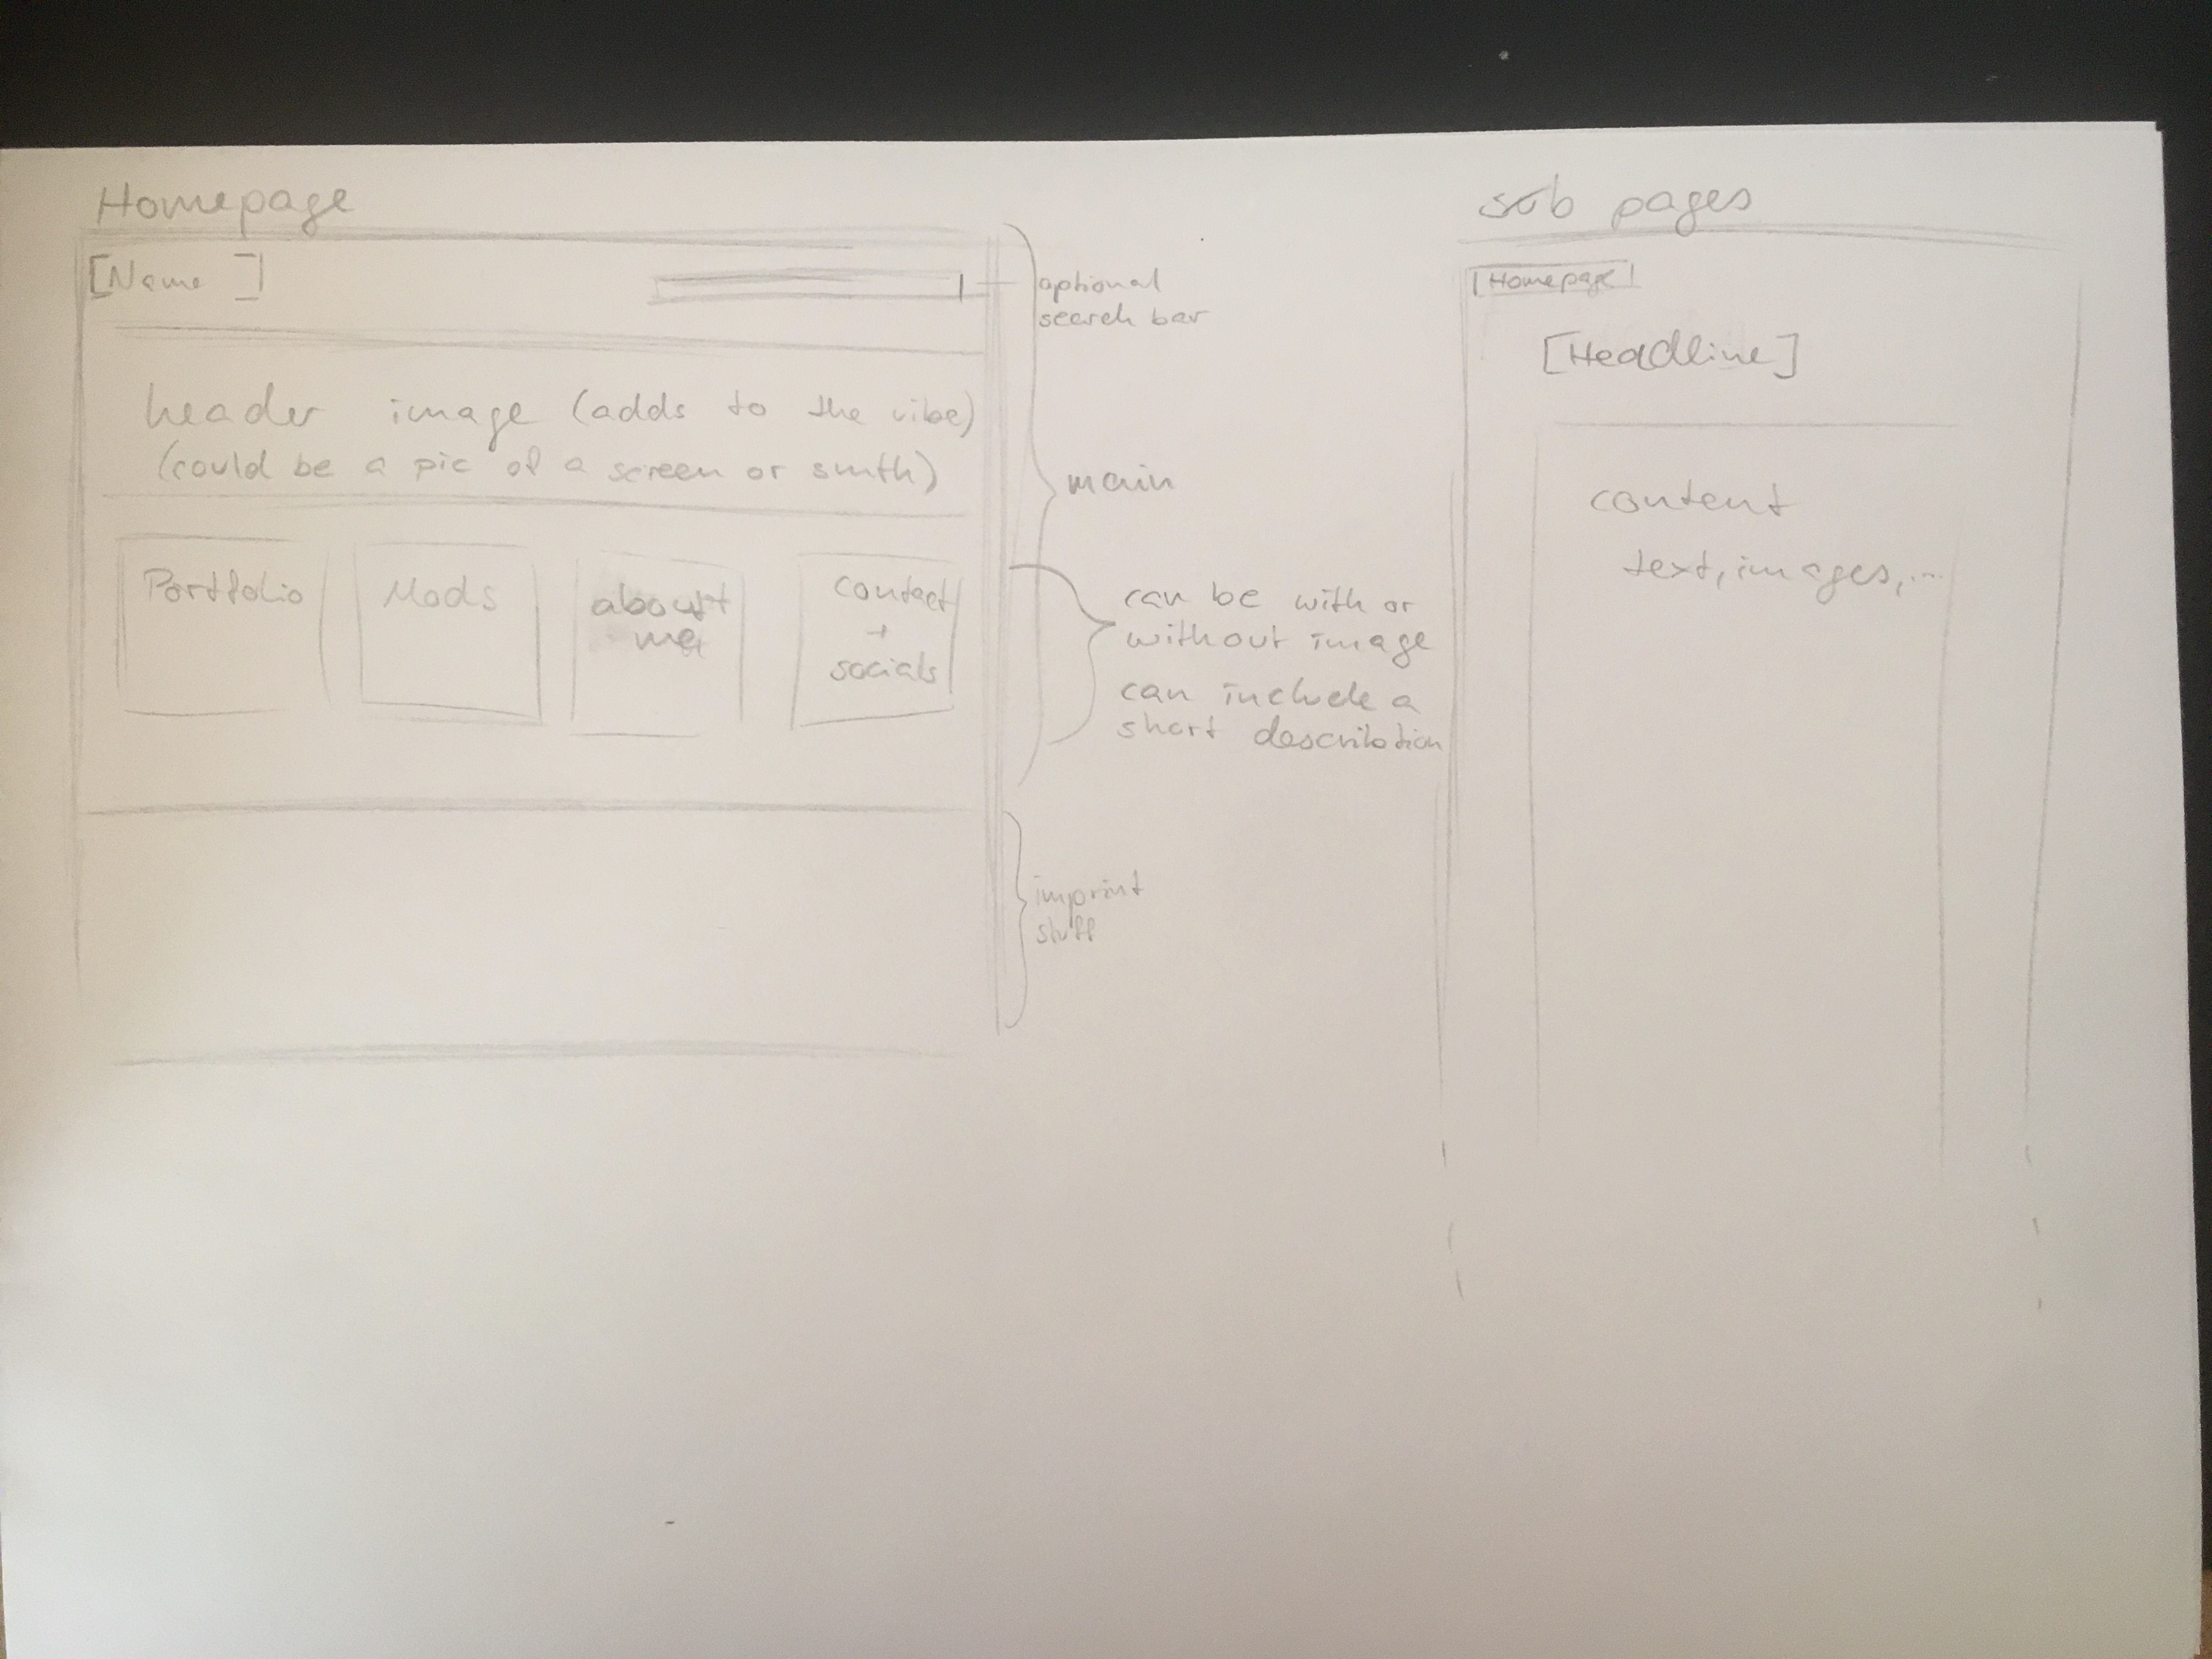 Homepage
[Name ]
optional
search bar
header image (adds to the vibe)
(could be a pic of a screen or smth)
main
Portfolio
Mods
about
me
contact
+
socials
can be with or
without image
can include a
short describtion
imprint
stuff
sub pages
[Homepage]
[Headline]
content
text, images, ...